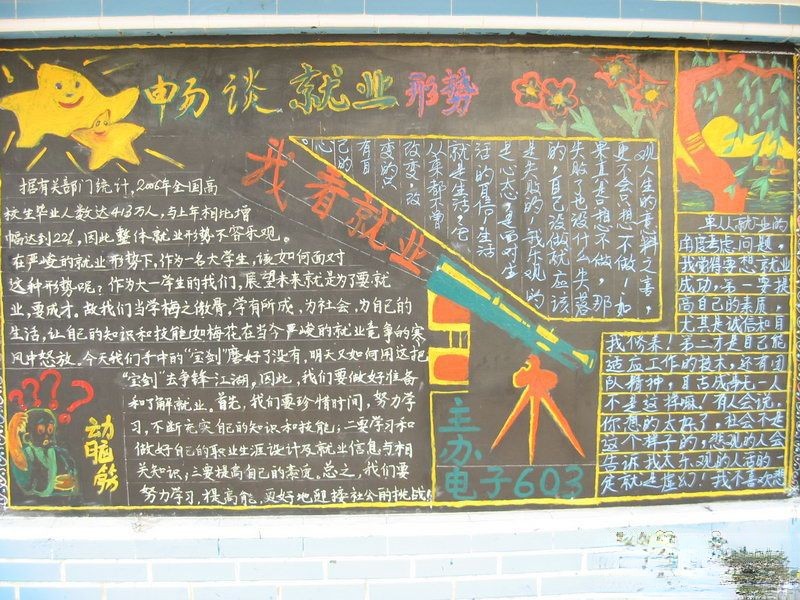 畅谈就业形势
我看就业
据有关部门统计,2006年全国高
校生毕业人数达413万人,与上年相比增
幅达到22%,因此整体就业形势不容乐观。
在严峻的就业形势下,作为一名大学生,该如何面对
这种形势呢?作为大一学生的我们,展望未来就是为了要就
业,要成才。故我们当学梅之傲骨,学有所成,为社会,为自己的
生活,让自己的知识和技能如梅花在当今严峻的就业竞争的寒
风中怒放。今天我们手中的“宝剑”磨好了没有,明天又如何用这把
“宝剑”去争锋江湖。因此,我们要做好准备
和了解就业。首先,我们要珍惜时间,努力学
习,不断充实自己的知识和技能;二要学习和
做好自己的职业生涯设计及就业信息与相
关知识;三要提高自己的素质。总之,我们要
努力学习,提高能,更好地迎接社会的挑战!
动脑筋
观人生的意料之事,
更不会只想不做!如
果真是只想不做,那
失败了也没什么失落
的,自己没做就应该
是失败的。我乐观的
是心态,是面对生
活的自信。生活
就是生活,它
从来都不曾
改变,改
变的只
有自
己的
心
主办
电子603
单从就业的
角度考虑问题,
我觉得要想就业
成功,第一要提
高自己的素质,
尤其是诚信和自
我修来!第二才是自己能
适应工作的技术,还有团
队精神,自古成事无一人
不是这样嘛!有人会说,
你想的太好了,社会不是
这个样子的,悲观的人会
告诉我太乐观的人活的一
定就是虚幻!我不喜欢悲